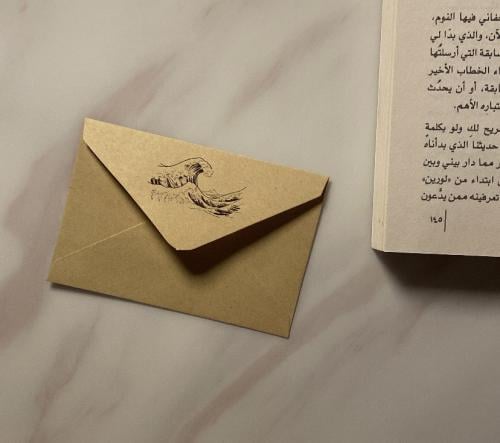 خفاني فيها النوم،
لآن، والذي بدًا لي
سابقة التي أرسلتُها
اء الخطاب الأخير
ابقة، أو أن يحدُث
تباره الأهم.
ريح لكِ ولو بكلمة
حديثنا الذي بدأناه
ر مما دار بيني وبين
ن ابتداء من «لورين»
تعرفينه ممن يدَّعون
١٤٥